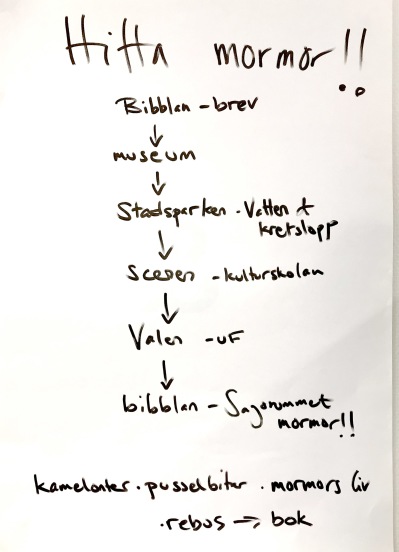 Hitta mormor!!
Bibblan - brev
museum
Stadsparken - Vatten +
kretslopp
Scenen - kulturskolan
Valen - UF
bibblan - Sagorummet
mormor!!
kamelonter . pusselbitar . mormors liv
. rebus → bok